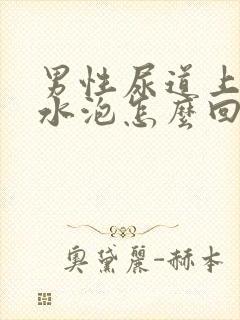 男性尿道上
水泡怎麼回
奧黛麗-赫本